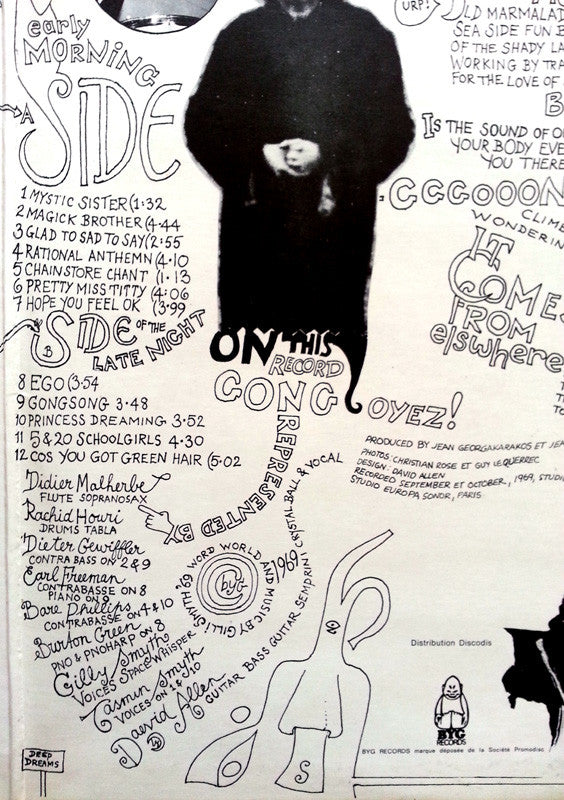 early
MORNING
A
SIDE
1 MYSTIC SISTER (1:32
2 MAGICK BROTHER (4·44
3 GLAD TO SAD TO SAY (2:55
4 RATIONAL ANTHEMN (4·10
5 CHAINSTORE CHANT (1·13
6 PRETTY MISS TITTY (4:06
7 HOPE YOU FEEL OK (3·99
B
SIDE OF THE
LATE NIGHT
8 EGO (3:54
9 GONGSONG 3·48
10 PRINCESS DREAMING 3·52
11 5 & 20 SCHOOLGIRLS 4·30
12 COS YOU GOT GREEN HAIR (5·02
Didier Malherbe
FLUTE SOPRANOSAX
Rachid Houri
DRUMS TABLA
Dieter Gewiffler
CONTRA BASS ON 2 & 9
Earl Freeman
CONTRABASSE ON 8
PIANO ON 9
Bare Phillips
CONTRABASSE ON 4 & 10
Burton Green
PNO & PNOHARP ON 8
Gilly Smyth
VOICES SPACEWHISPER
Tasmin Smyth
VOICES ON 1 & 10
Daevid Allen
GUITAR BASS GUITAR SEMPRINI CRYSTAL BALL & VOCAL
ON THIS
RECORD
GONG
REPRESENTED BY
WORD WORLD AND MUSIC BY GILLI SMYTH 69
byg
1969
DEED
DREAMS
S
URP!
OLD MARMALAD
SEA SIDE FUN B
OF THE SHADY LA
WORKING BY TRA
FOR THE LOVE OF
B
IS THE SOUND OF O
YOUR BODY EVE
YOU THERE
GGGOOON
CLIME
WONDERIN
IT
COMES
FROM
elsewhere
OYEZ!
PRODUCED BY JEAN GEORGAKARAKOS ET JEA
PHOTOS: CHRISTIAN ROSE ET GUY LE QUERREC
DESIGN: DAVID ALLEN
RECORDED SEPTEMBER ET OCTOBER, 1969, STUDIO
STUDIO EUROPA SONOR, PARIS
Distribution Discodis
BYG
RECORDS
BYG RECORDS marque déposée de la Société Promodisc